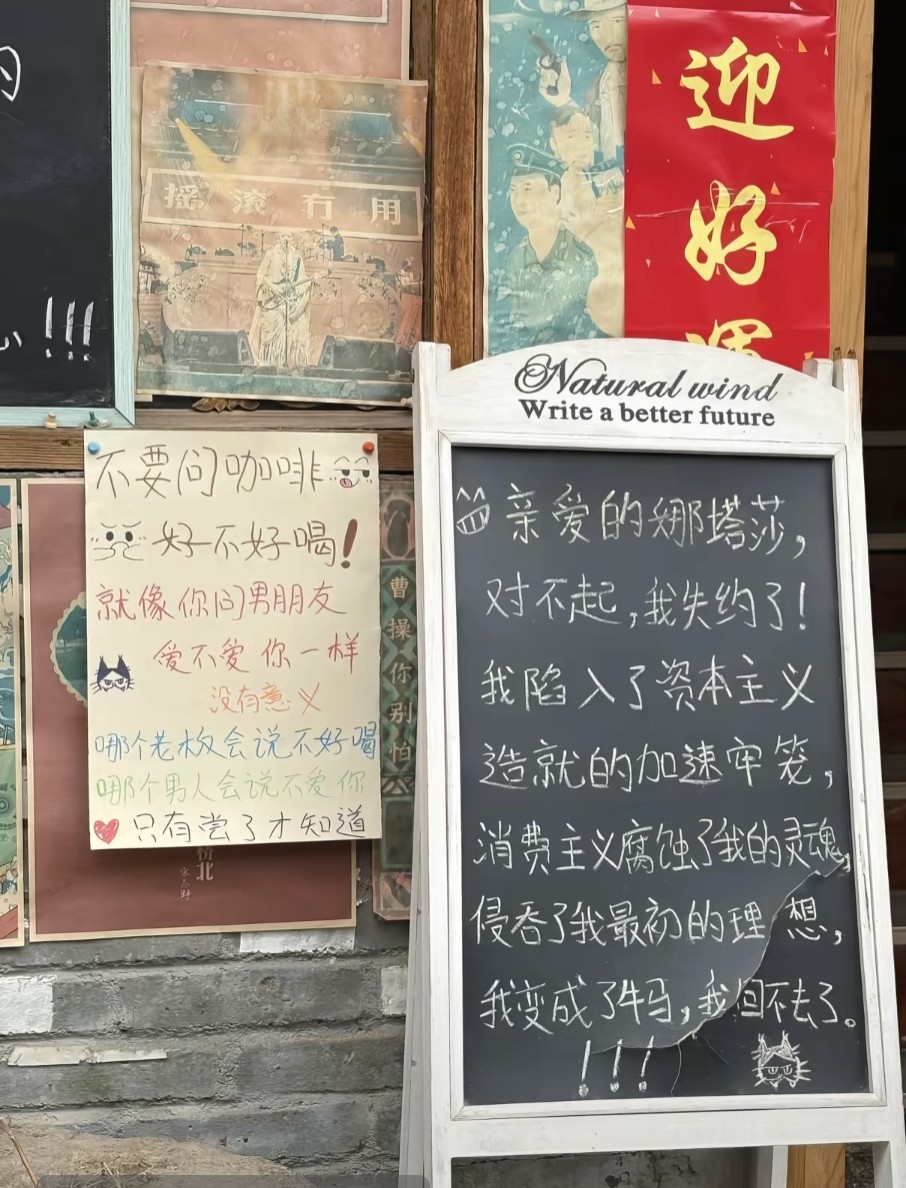 !!!
摇滚有用
迎
好
运
不要问咖啡
好不好喝!
就像你问男朋友
爱不爱你一样
没有意义
哪个老板会说不好喝
哪个男人会说不爱你
只有尝了才知道
曹操你别怕
桥北
Natural wind
Write a better future
亲爱的娜塔莎,
对不起,我失约了!
我陷入了资本主义
造就的加速牢笼,
消费主义腐蚀了我的灵魂,
侵吞了我最初的理想,
我变成了牛马,我回不去了。
!!!